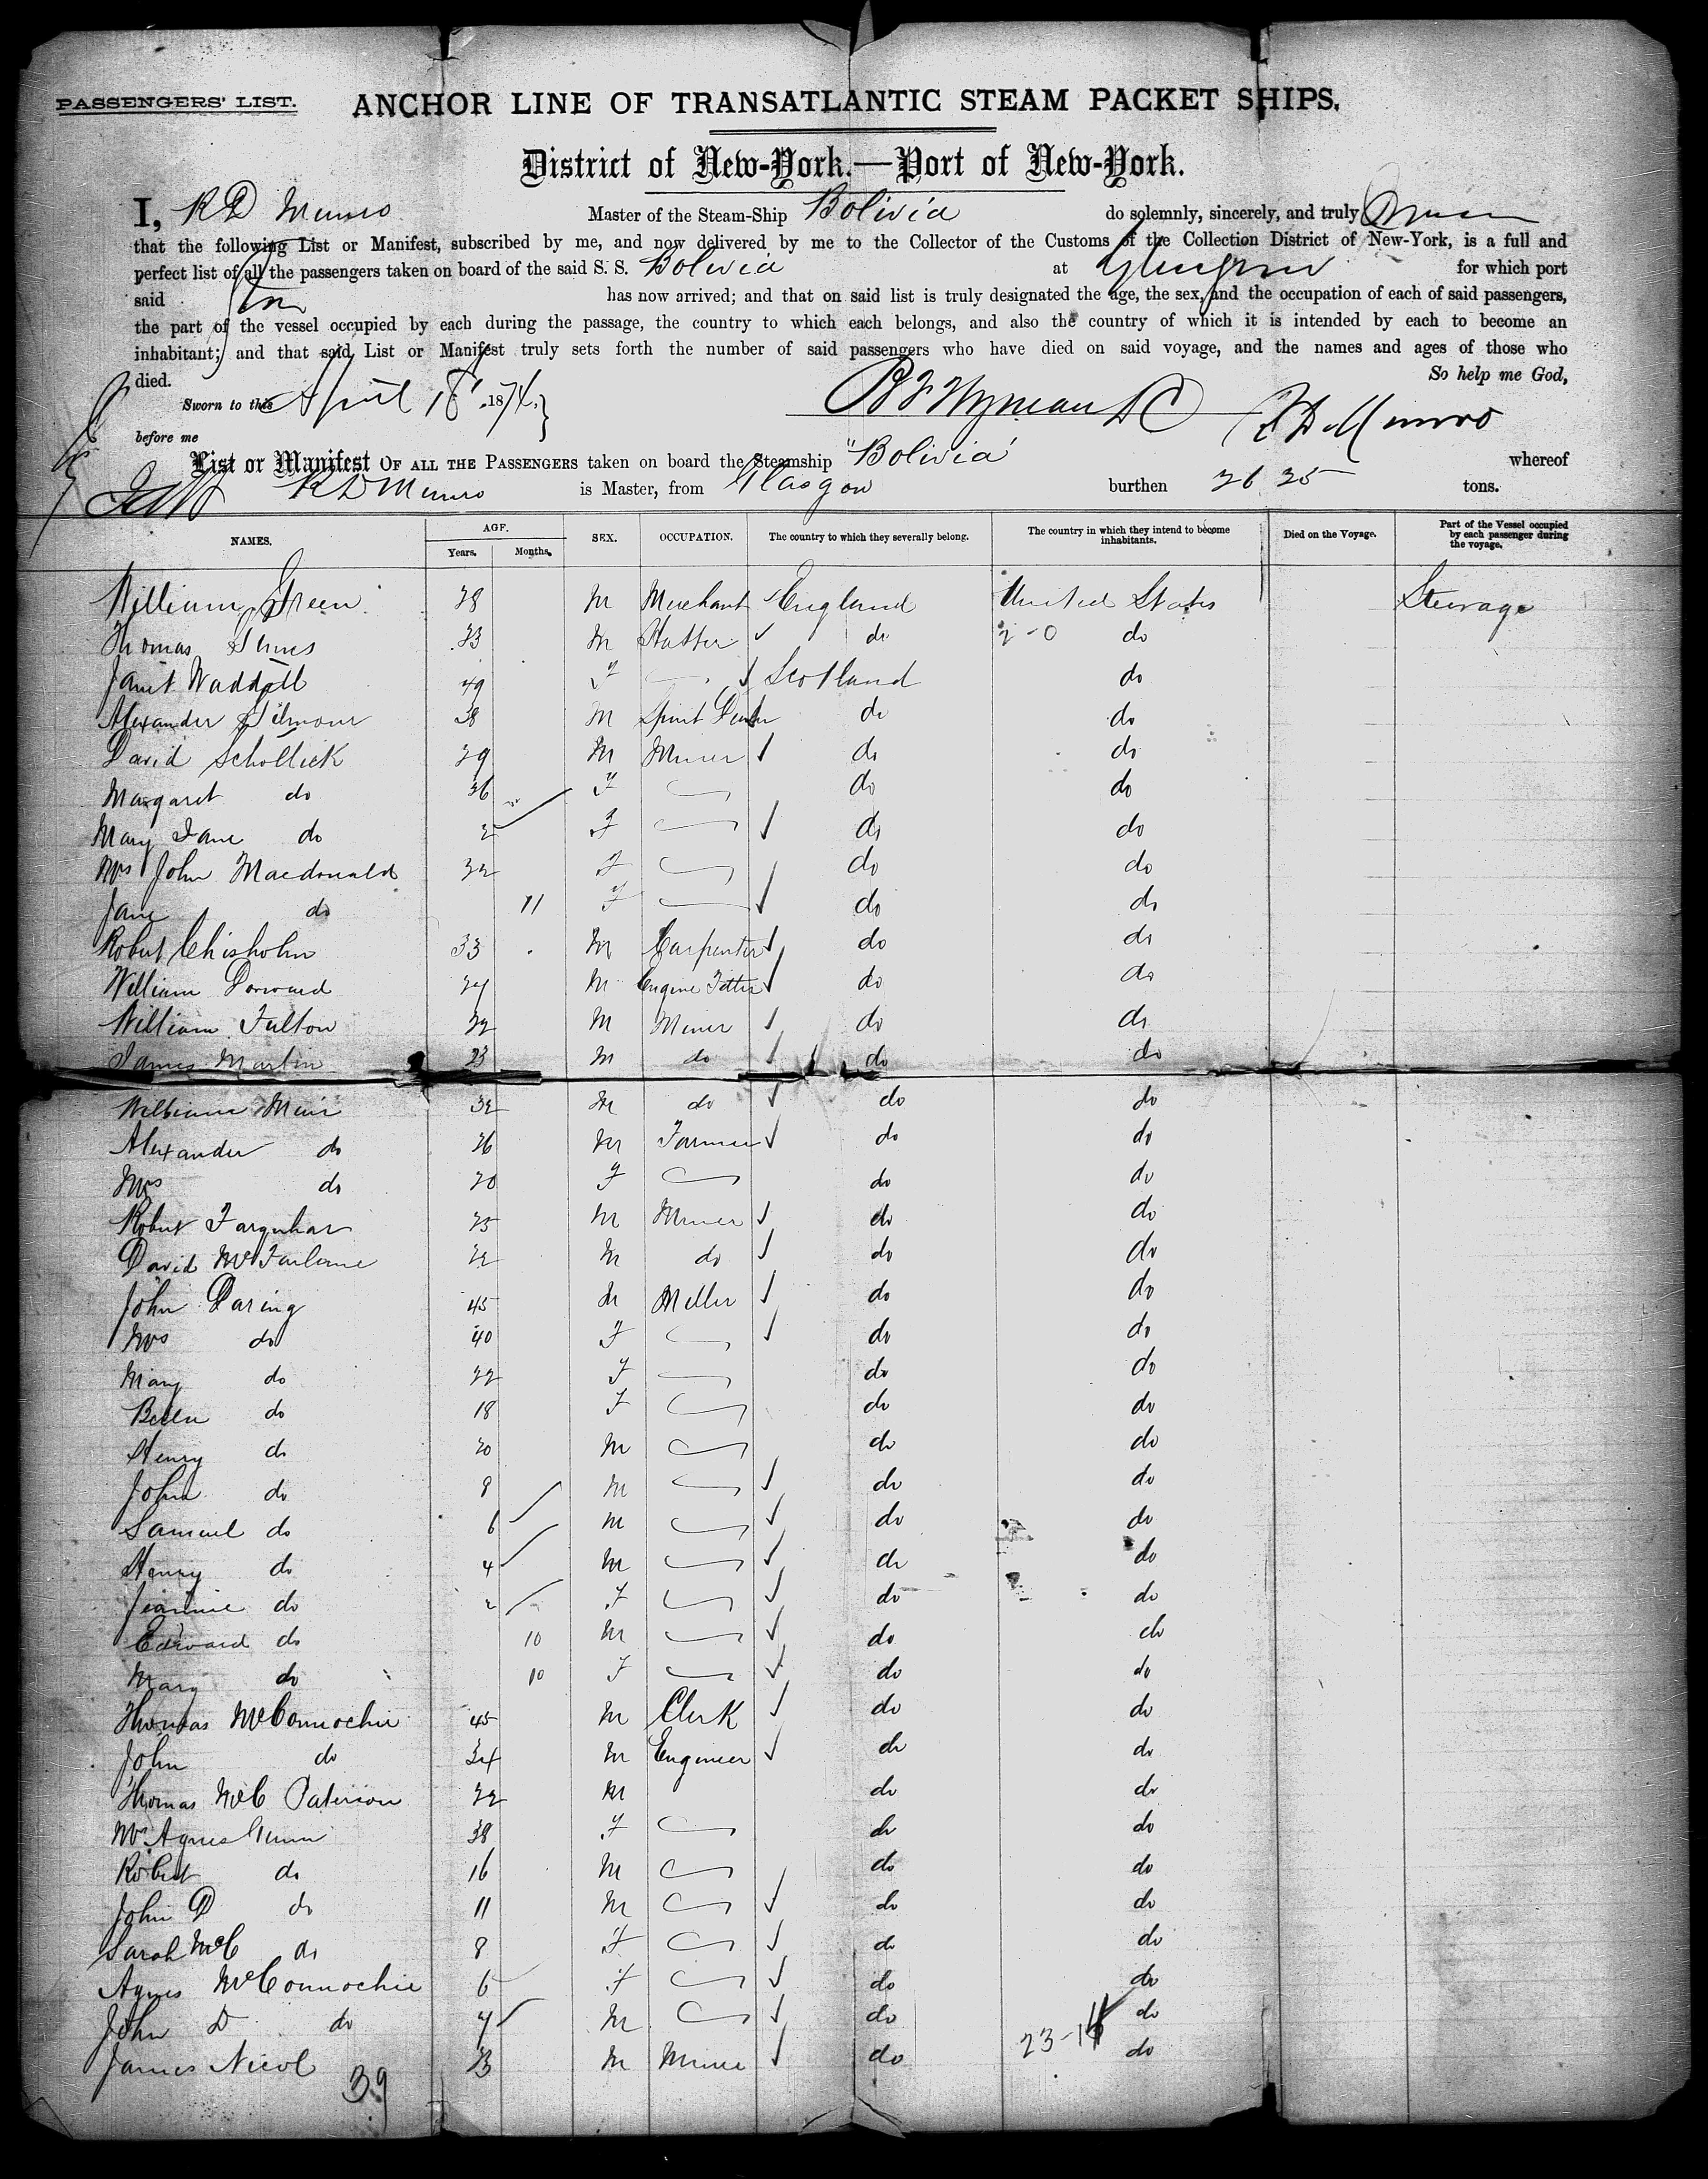 PASSENGERS' LIST. ANCHOR LINE OF TRANSATLANTIC STEAM PACKET SHIPS.
District of New-York.—Port of New-York.
I, R D Munro Master of the Steam-Ship Bolivia do solemnly, sincerely, and truly Swear
that the following List or Manifest, subscribed by me, and now delivered by me to the Collector of the Customs of the Collection District of New-York, is a full and
perfect list of all the passengers taken on board of the said S. S. Bolivia at Glasgow for which port
said has now arrived; and that on said list is truly designated the age, the sex, and the occupation of each of said passengers,
the part of the vessel occupied by each during the passage, the country to which each belongs, and also the country of which it is intended by each to become an
inhabitant; and that said List or Manifest truly sets forth the number of said passengers who have died on said voyage, and the names and ages of those who
died. So help me God,
Sworn to this April 18 1874.
before me R D Munro
List or Manifest OF ALL THE PASSENGERS taken on board the Steamship "Bolivia" whereof
R D Munro is Master, from Glasgow burthen 26 25 tons.
NAMES. AGE. Years. Months. SEX. OCCUPATION. The country to which they severally belong. The country in which they intend to become inhabitants. Died on the Voyage. Part of the Vessel occupied by each passenger during the voyage.
William Green 28 M Merchant England United States Steerage
Thomas 23 M Hatter do 2-0 do
Janet Waddell 49 F Scotland do
Alexander Gilmour 38 M Spirit Dealer do do
David Schollick 29 M Miner do do
Margaret do 26 F do do
Mary Jane do 2 F do do
Mrs John Macdonald 22 F do do
Jane do 11 F do do
Robert Chisholm 33 M Carpenter do do
William Dorward 24 M Engine Fitter do do
William Fulton 22 M Miner do do
James Martin 23 M do do do
William Muir 32 M do do do
Alexander do 26 M Farmer do do
Mrs do 20 F do do
Robert Farquhar 25 M Miner do do
David McFarlane 22 M do do do
John Daring 45 M Miller do do
Mrs do 40 F do do
Mary do 22 F do do
do 18 F do do
Henry do 20 M do do
John do 8 M do do
Samuel do 6 M do do
Henry do 4 M do do
Jeannie do 2 F do do
Edward do 10 M do do
Mary do 10 F do do
Thomas McConnochie 45 M Clerk do do
John do 24 M Engineer do do
Thomas McC Paterson 22 M do do
Mrs Agnes 38 F do do
Robert do 16 M do do
John D do 11 M do do
Sarah McC do 8 F do do
Agnes McConnochie 6 F do do
John D do 4 M do do
James Nicol 23 M Miner do 23-14 do
39